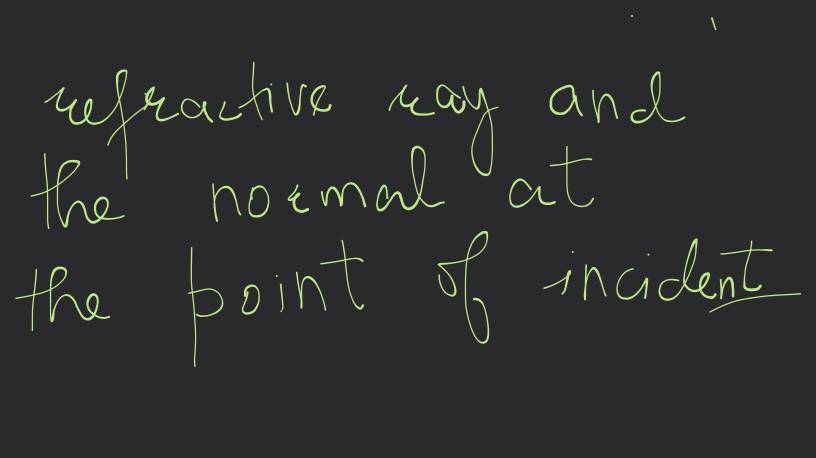 refractive ray and
the normal at
the point of incident